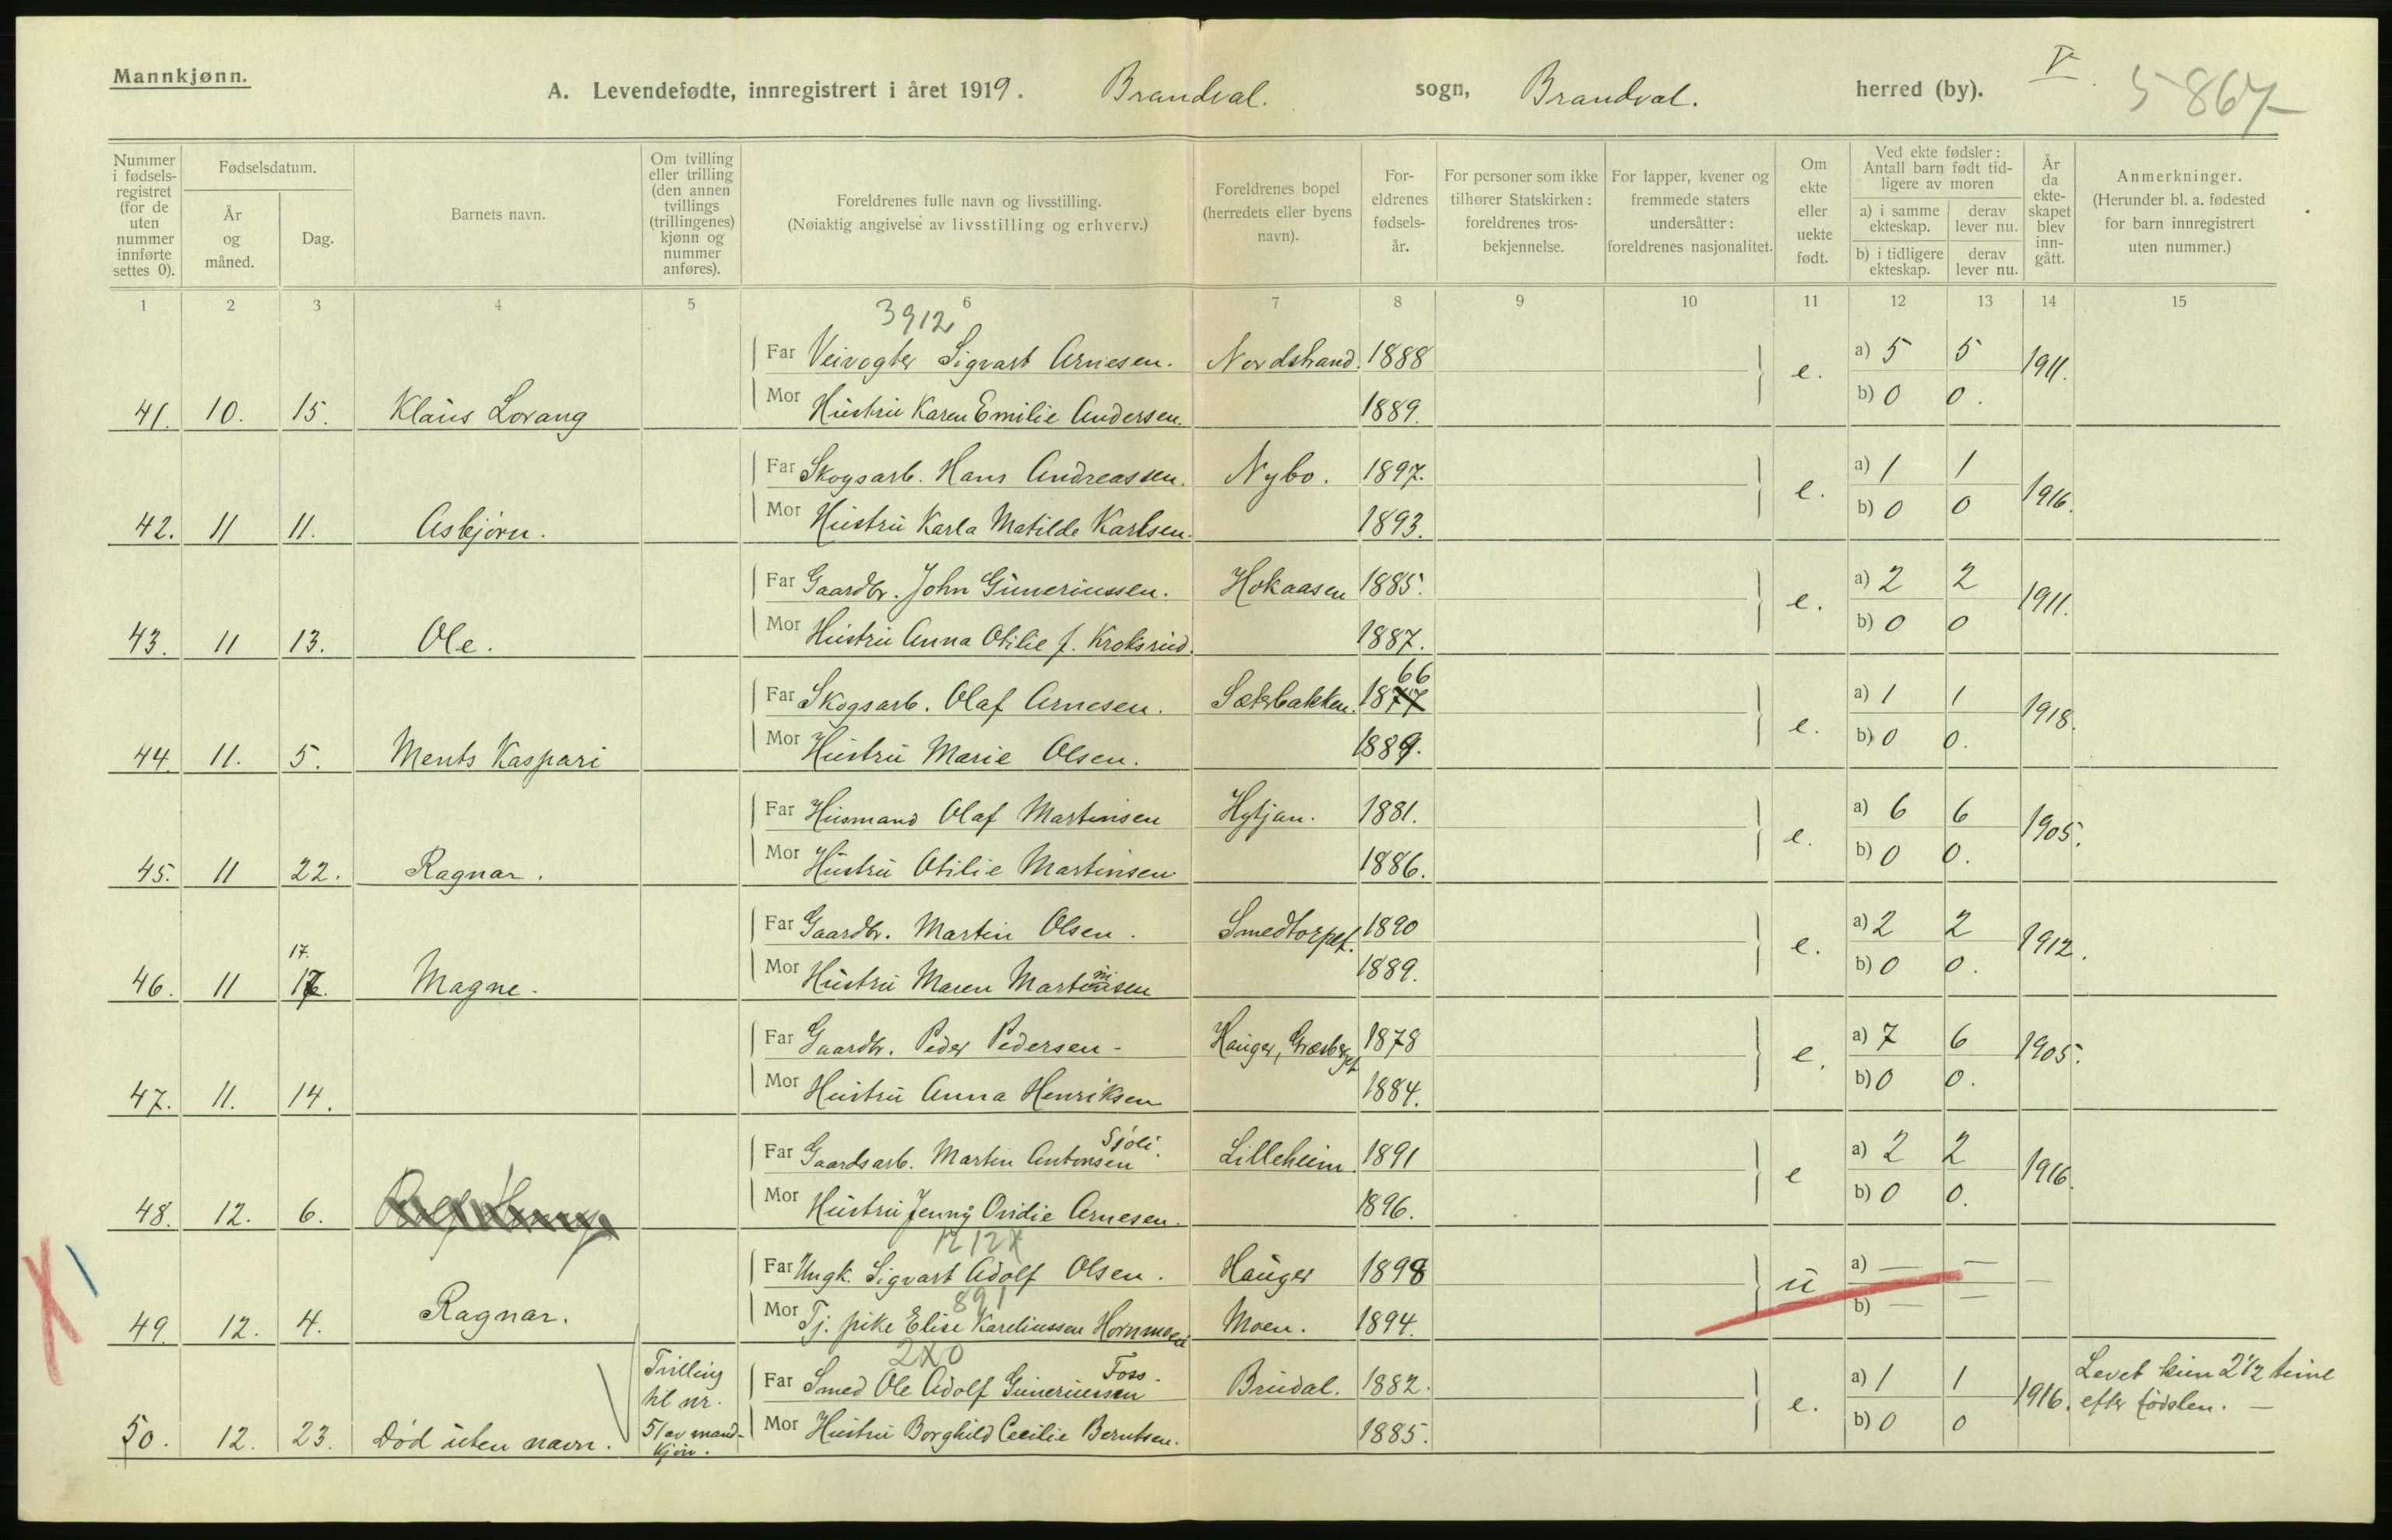 Mannkjønn.
A. Levendefødte, innregistrert i året 1919. Brandval. sogn, Brandval. herred (by). V 5867
Nummer i fødsels-registret (for de uten nummer innførte settes 0).
Fødselsdatum.
År og måned.
Dag.
Barnets navn.
Om tvilling eller trilling (den annen tvillings (trillingenes) kjønn og nummer anføres).
Foreldrenes fulle navn og livsstilling.
(Nøiaktig angivelse av livsstilling og erhverv.)
Foreldrenes bopel (herredets eller byens navn).
For-eldrenes fødsels-år.
For personer som ikke tilhører Statskirken: foreldrenes tros-bekjennelse.
For lapper, kvener og fremmede staters undersåtter: foreldrenes nasjonalitet.
Om ekte eller uekte født.
Ved ekte fødsler: Antall barn født tid-ligere av moren
a) i samme ekteskap. derav lever nu.
b) i tidligere ekteskap. derav lever nu.
År da ekte-skapet blev inn-gått.
Anmerkninger. (Herunder bl. a. fødested for barn innregistrert uten nummer.)
1 2 3 4 5 6 7 8 9 10 11 12 13 14 15
3912
Far Veivogter Sigvart Arnesen. Nordstrand. 1888 e. a) 5 5 1911.
41. 10. 15. Klaus Lovang Mor Hustru Karen Emilie Andersen. 1889. b) 0 0.
Far Skogsarb. Hans Andreassen. Nybo. 1897. e. a) 1 1 1916.
42. 11 11. Asbjørn. Mor Hustru Karla Matilde Karlsen. 1893. b) 0 0
Far Gaardbr. John Guneriussen. Hokaasen 1885. e. a) 2 2 1911.
43. 11 13. Ole. Mor Hustru Anna Otilie f. Kroksrud. 1887. b) 0 0
66
Far Skogsarb. Olaf Arnesen. Sætrbakken. 1877 e. a) 1 1 1918.
44. 11. 5. Ments Kaspari Mor Hustru Marie Olsen. 1889. b) 0 0.
Far Husmand Olaf Martinsen Hytjan. 1881. e. a) 6 6 1905.
45. 11 22. Ragnar. Mor Hustru Otilie Martinsen 1886. b) 0 0.
Far Gaardbr. Martin Olsen. Smedtorpet. 1890 e. a) 2 2 1912.
17.
46. 11 17. Magne. Mor Hustru Maren Martinsen 1889. b) 0 0.
Far Gaardbr. Peder Pedersen - Hauger, Græsberget 1878 e. a) 7 6 1905.
47. 11. 14. Mor Hustru Anna Henriksen 1884. b) 0 0.
Sjøli.
Far Gaardsarb. Martin Antonsen Lilleheim. 1891 e a) 2 2 1916.
48. 12. 6. Mor Hustru Jenny Ovidie Arnesen. 1896. b) 0 0.
1212
Far Ungk. Sigvart Adolf Olsen. Hauger 1898 u a) — — —
891
49. 12. 4. Ragnar. Mor Tj. pike Elise Kareliussen Hornmoen Moen. 1894. b) — —
2X0
Foss.
Tvilling til nr. 51 av mand-kjøn. Far Smed Ole Adolf Guneriussen Brudal. 1882. e. a) 1 1 1916. Levet kun 2 1/2 time efter fødslen. —
50. 12. 23. Død uten navn. Mor Hustru Borghild Cecilie Berntsen. 1885. b) 0 0